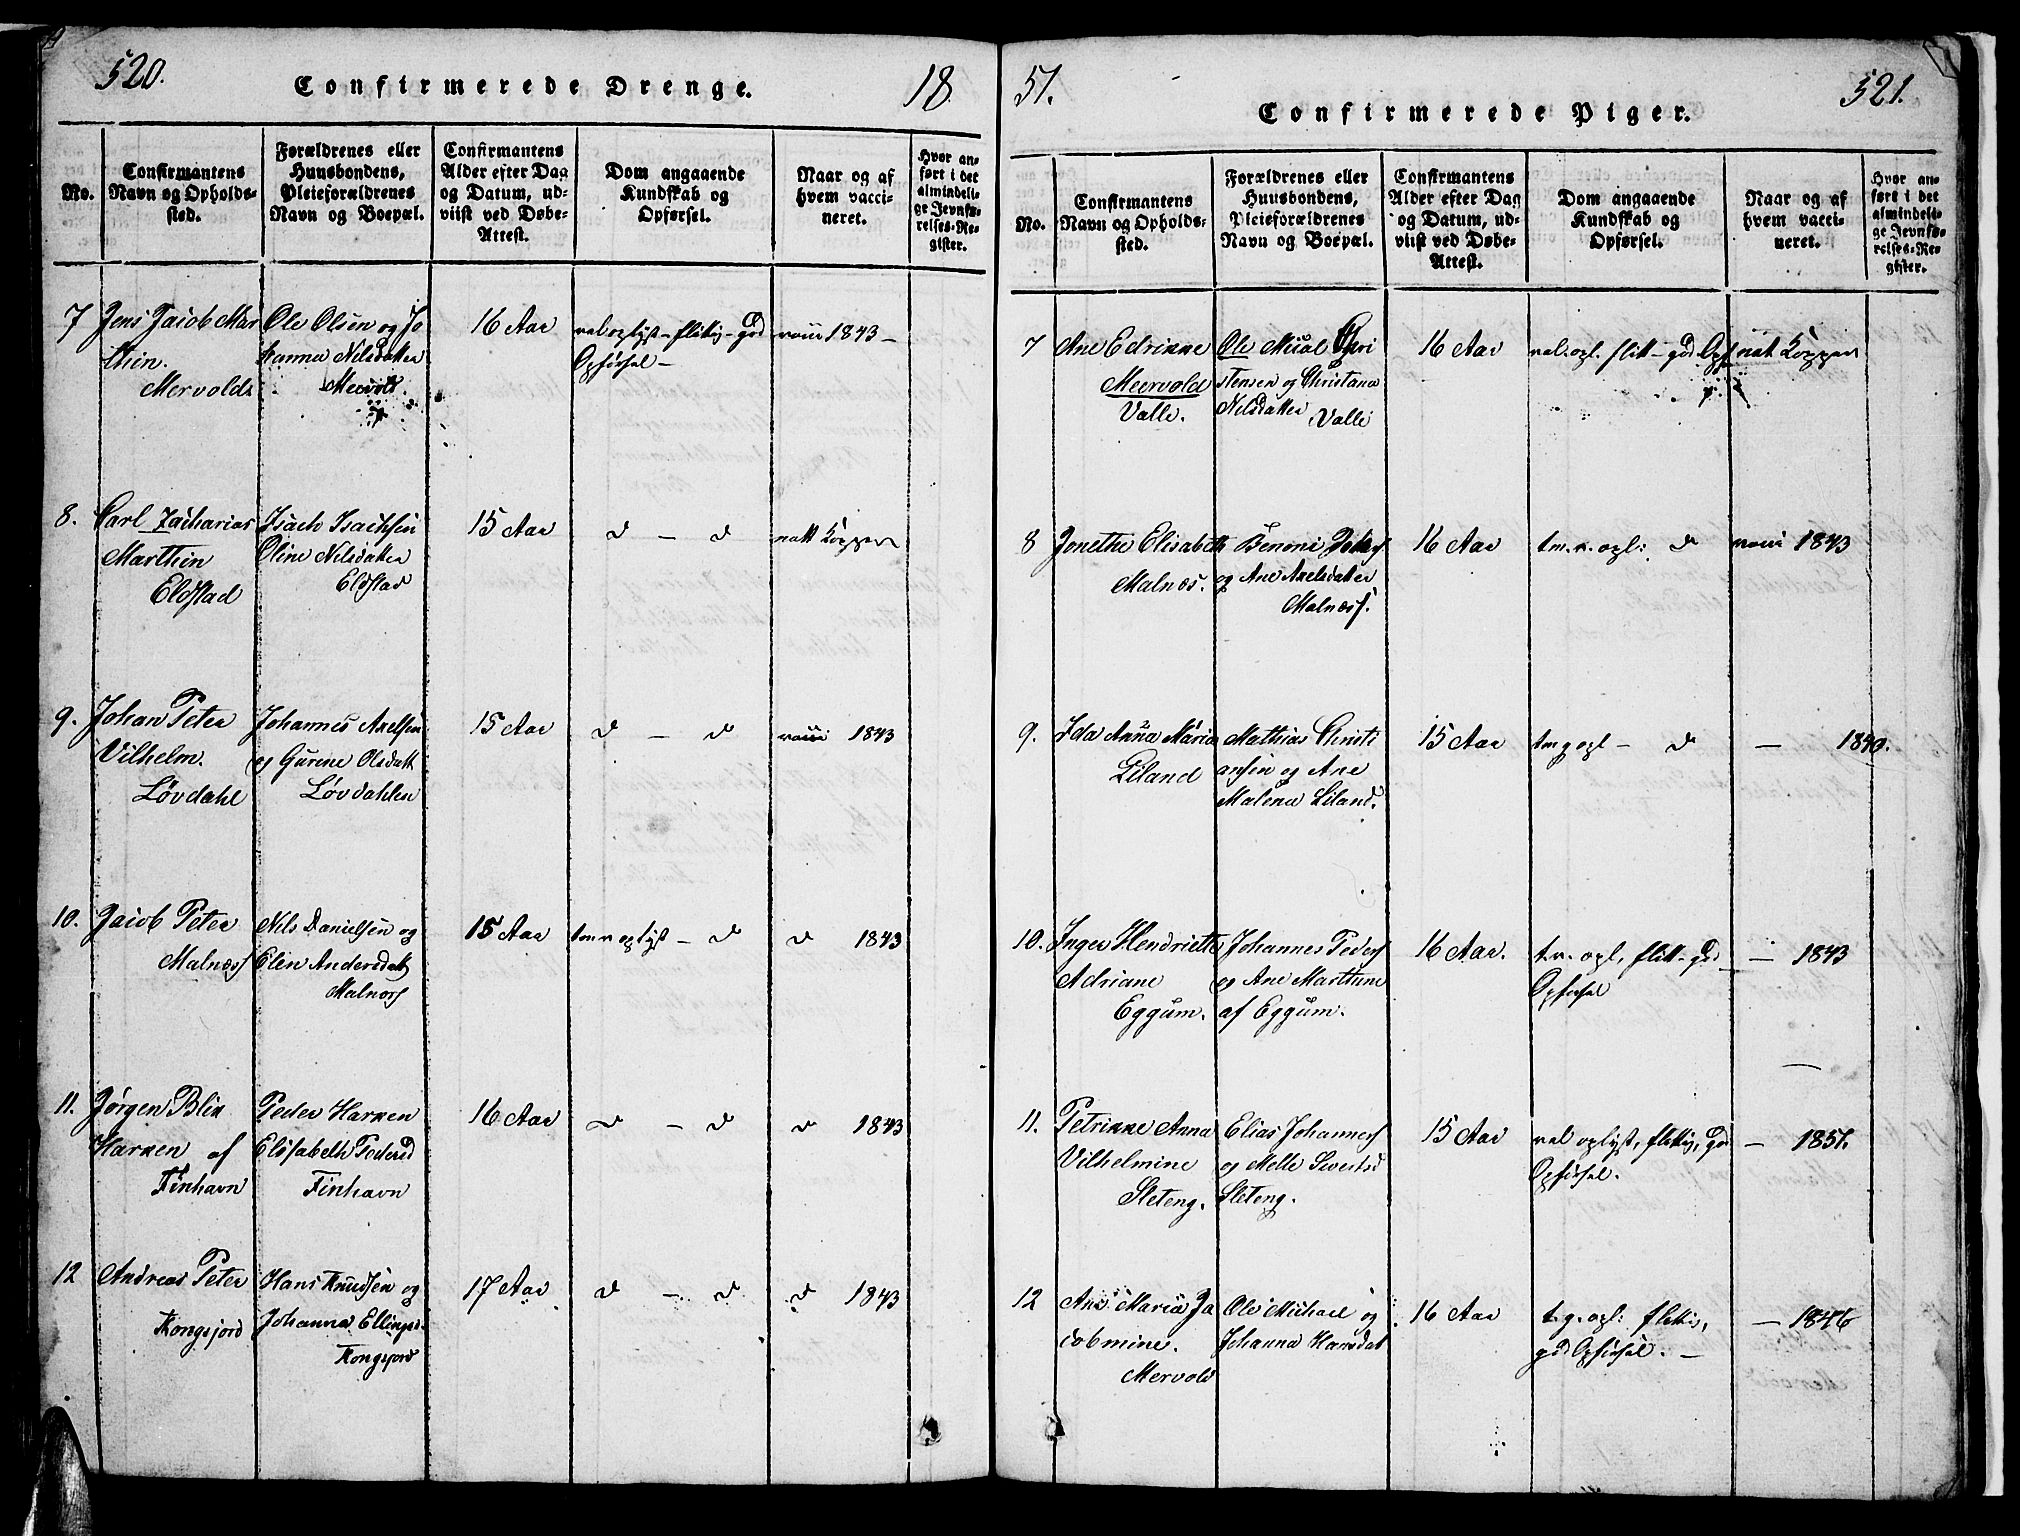 520.
Confirmerede Drenge.
18
No.
Confirmantens
Navn og Opholds-
sted.
Forældrenes eller
Huusbondens,
Pleieforældrenes
Navn og Boepæl.
Confirmantens
Alder efter Dag
og Datum, ud-
viist ved Døbe-
Attest.
Dom angaaende
Kundskab og
Opførsel.
Naar og af
hvem vacci-
neret.
Hvor an-
ført i det
almindeli-
ge Jevnfø-
relses-Re-
gister.
7 Jens Jacob Mar
thin.
Mervold
Ole Olsen og Jo
hanna Nilsdatter
Mervold
16 Aar
vel oplyst - flittig - god
Opførsel -
vacc 1843 -
8. Carl Zacharias
Marthin
Eldstad
Isach Isachsen
Oline Nilsdatter
Eldstad
15 Aar
d - d
natt Kopper
9. Johan Peter
Vilhelm.
Løvdahl
Johannes Axelsen
og Gurine Olsdatt
Løvdahlen
15 Aar
d - d
vacc 1843
10. Jacob Peter
Malnæss
Nils Danielsen og
Elen Andersdatt
Malnæss
15 Aar
tem v oplyst - d
d 1843
11. Jørgen Blix
Harxen af
Finhavn
Peder Harxen
Elisabeth Pedersd
Finhavn
16 Aar
d - d
d 1843
12 Andreas Peter
Kongsjord
Hans Knudsen og
Johanna Ellingsd.
Kongsjord
17 Aar
d - d
d 1843
51.
Confirmerede Piger.
521.
No.
Confirmantens
Navn og Opholds-
sted.
Forældrenes eller
Huusbondens,
Pleieforældrenes
Navn og Boepæl.
Confirmantens
Alder efter Dag
og Datum, ud-
viist ved Døbe-
Attest.
Dom angaaende
Kundskab og
Opførsel.
Naar og af
hvem vacci-
neret.
Hvor an-
ført i det
almindeli-
ge Jevnfø-
relses-Re-
gister.
7 Ane Edrikke
Meervold
Valle.
Ole Mical Chri
stensen og Christana
Nilsdatter
Valle
16 Aar
vel. opl. flitt - god Opf
nat Kopper
8 Jonethe Elisabeth
Malnæs.
Benoni Peders
og Ane Axelsdatter
Malnæss.
16 Aar
tm. v. opl: d
vacc 1843
9. Ida Anna Maria
Liland
Mathias Christi
ansen og Ane
Malena Liland.
15 Aar
tm g opl - d
- 1840.
10. Inger Hendriette
Adriane
Eggum.
Johannes Peders
og Ane Marthine
af Eggum.
16 Aar.
t. v. opl, flitt - god
Opførsel
- 1843
11. Petrikke Anna
Vilhelmine
Sleteng.
Elias Johanness
og Melle Sivertsd
Sleteng.
15 Aar
vel oplyst, flittig, god
Opførsel.
- 1851.
12 Ane Maria Ja
cobmine.
Mervold
Ole Michael og
Johanna Hansdat
16 Aar
t. g. opl: flittig,
god Opførsel. -
- 1846